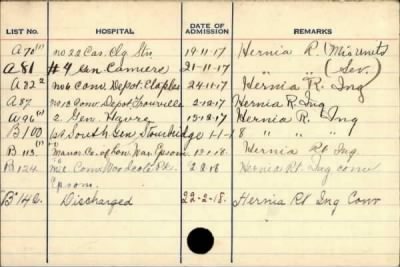 HOSPITAL DATE OF ADMISSION REMARKS
A 70 (1) No 22 Cas. Clg. Stn 19-11-17 Hernia R. (Mis units)
A 81 #4 Gen Camiers 21-11-17 " " (Sev.)
A 82 2 No 6 Conv. Depot. Etaples 24-11-17 Hernia R. Ing
A 87. No 13 Conv. Depot Trouville 2-12-17 Hernia R. Ing
A 96 (1) 2. Gen. Havre 15-12-17 Hernia R. Ing
B 100 1st South Gen Stourbridge 1-1-18 " "
B 113 (1) Manor Co. of Lon. War. Epsom 17-1-18. Hernia Rt Ing.
B 124 Mil Conv Woodcote Pk. 2 2 18 Hernia Rt Ing conv
Epsom.
B 146. Discharged 22-2-18. Hernia Rt Ing Conv